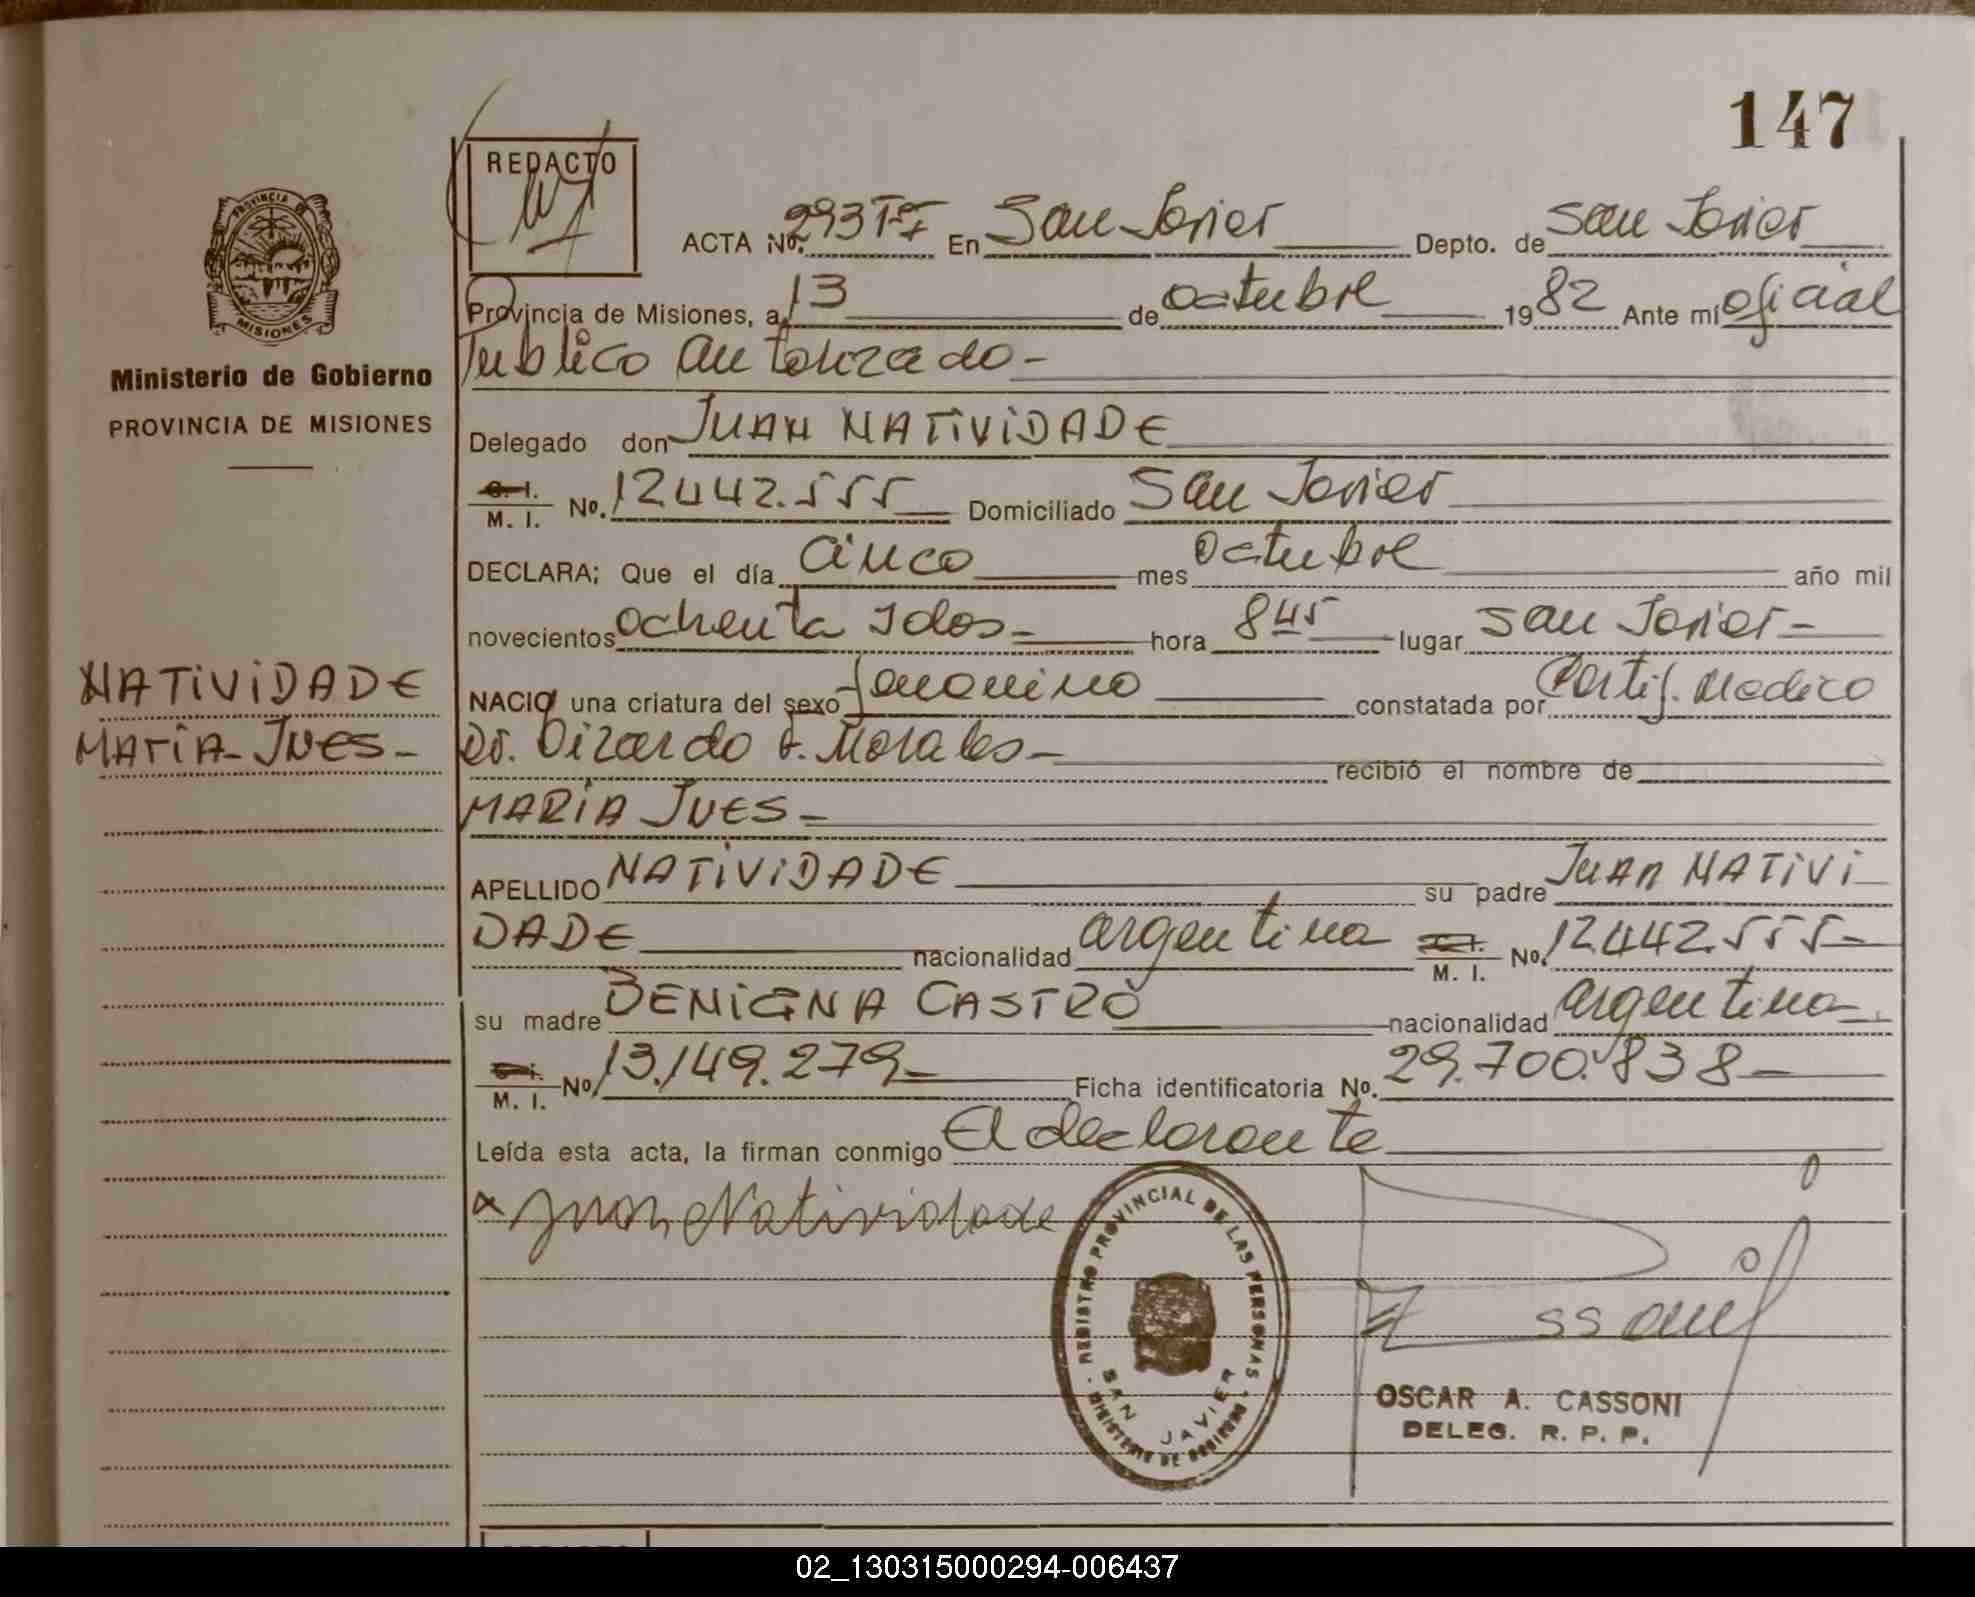 147
REDACTO
ACTA No. 293 TºI En San Javier Depto. de San Javier
PROVINCIA DE
MISIONES
Provincia de Misiones, a 13 de octubre 1982 Ante mí oficial
Publico autorizado-
Ministerio de Gobierno
PROVINCIA DE MISIONES
Delegado don JUAN NATIVIDADE
C. I.
M. I. No. 12442.555 Domiciliado San Javier
DECLARA; Que el día cinco mes octubre año mil
novecientos ochenta y dos- hora 845 lugar San Javier-
NATIVIDADE
MARIA-INES-
NACIO una criatura del sexo femenino constatada por Certif. Medico
Dr. F. Morales- recibió el nombre de
MARIA INES-
APELLIDO NATIVIDADE su padre JUAN NATIVI
DADE nacionalidad argentina C. I. M. I. No. 12.442.555-
su madre BENIGNA CASTRO nacionalidad argentina
C. I.
M. I. No 13.149.279- Ficha identificatoria No. 29.700.838-
Leída esta acta, la firman conmigo El declarante
x Juan Natividade
REGISTRO PROVINCIAL DE LAS PERSONAS
SAN JAVIER
MINISTERIO DE GOBIERNO
OSCAR A. CASSONI
DELEG. R. P. P.
02_130315000294-006437